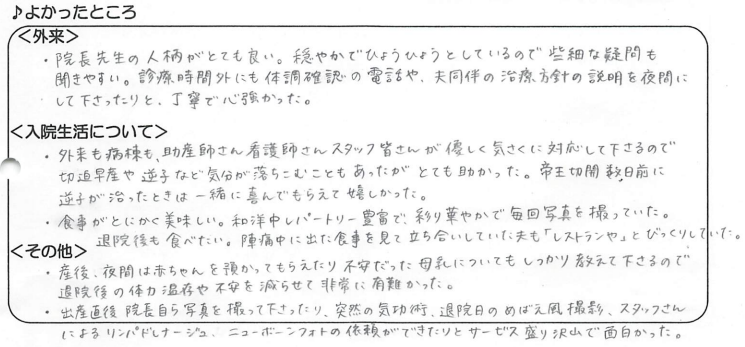 ♪よかったところ
<外来>
・院長先生の人柄がとても良い。穏やかでひょうひょうとしているので些細な疑問も
聞きやすい。診療時間外にも体調確認の電話や、夫同伴の治療方針の説明を夜間に
して下さったりと、丁寧で心強かった。
<入院生活について>
・外来も病棟も、助産師さん看護師さんスタッフ皆さんが優しく気さくに対応して下さるので
切迫早産や逆子など気分が落ちこむこともあったがとても助かった。帝王切開数日前に
逆子が治ったときは一緒に喜んでもらえて嬉しかった。
・食事がとにかく美味しい。和洋中レパートリー豊富で、彩り華やかで毎回写真を撮っていた。
退院後も食べたい。陣痛中に出た食事を見て立ち合いしていた夫も「レストランや」とびっくりしていた。
<その他>
・産後、夜間は赤ちゃんを預かってもらえたり不安だった母乳についてもしっかり教えて下さるので
退院後の体力温存や不安を減らせて非常に有難かった。
・出産直後院長自ら写真を撮って下さったり、突然の気功術、退院日のめばえ風撮影、スタッフさん
によるリンパドレナージュ、ニューボーンフォトの依頼ができたりとサービス盛り沢山で面白かった。